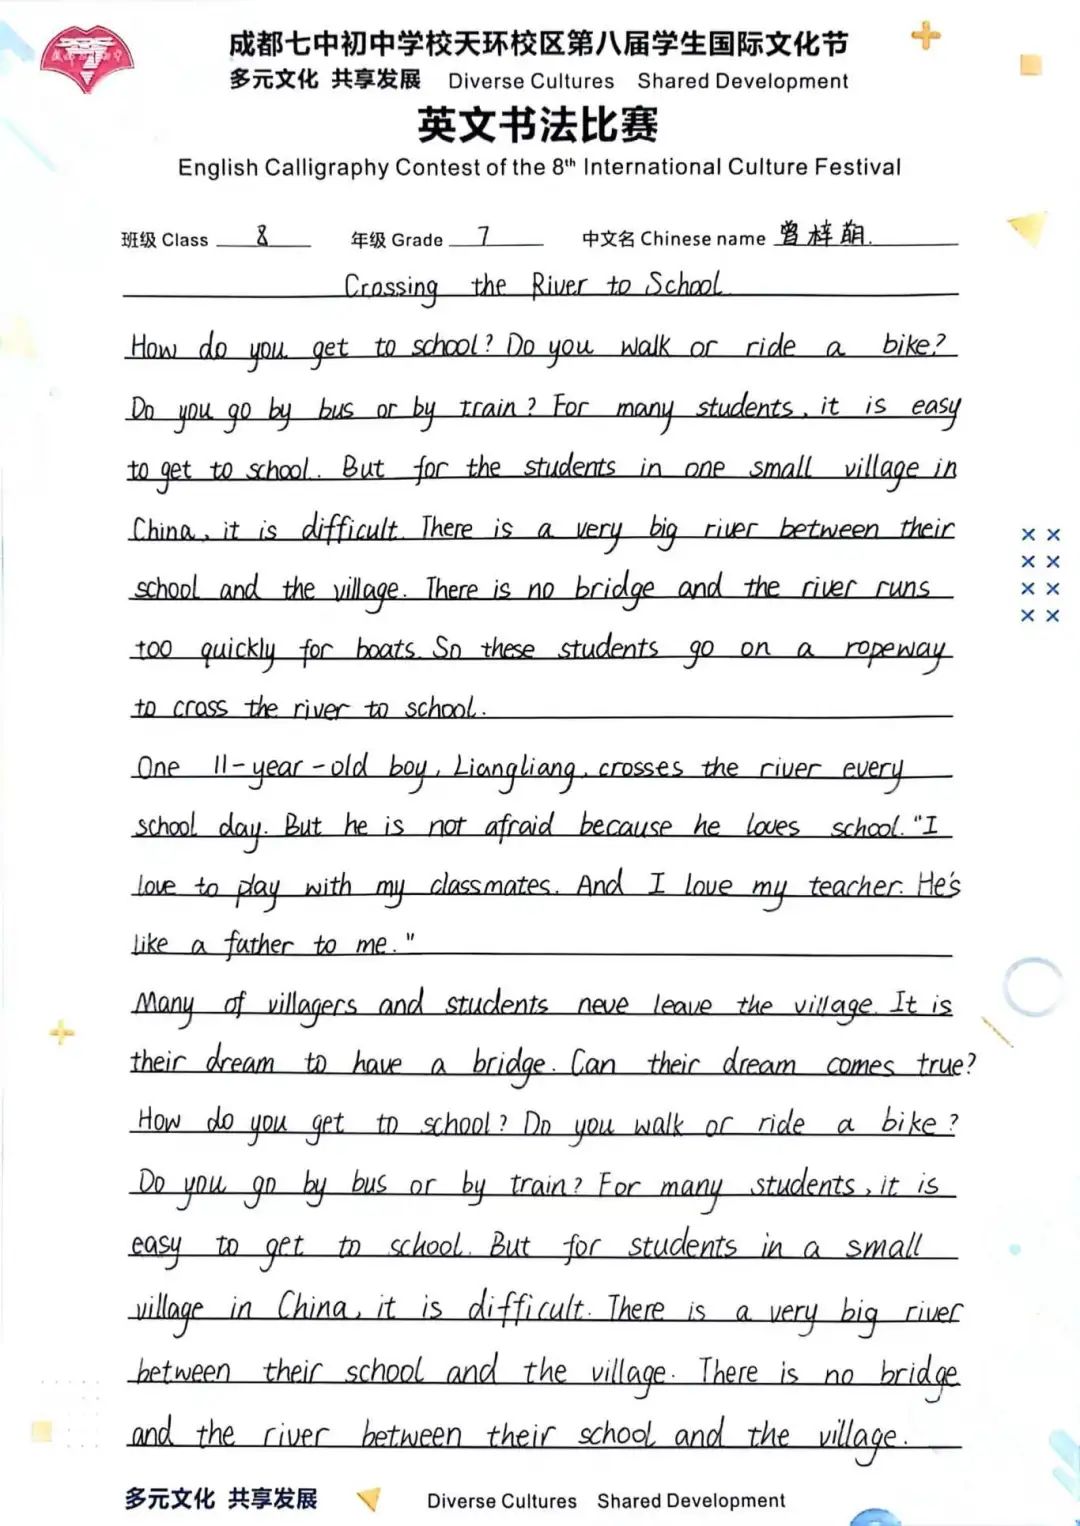 成都七中初中学校天环校区第八届学生国际文化节
多元文化 共享发展 Diverse Cultures Shared Development
英文书法比赛
English Calligraphy Contest of the 8th International Culture Festival
班级 Class 8 年级 Grade 7 中文名 Chinese name 曾梓萌.
Crossing the River to School
How do you get to school? Do you walk or ride a bike?
Do you go by bus or by train? For many students, it is easy
to get to school. But for the students in one small village in
China, it is difficult. There is a very big river between their
school and the village. There is no bridge and the river runs
too quickly for boats. So these students go on a ropeway
to cross the river to school.
One 11-year-old boy, Liangliang, crosses the river every
school day. But he is not afraid because he loves school. "I
love to play with my classmates. And I love my teacher. He's
like a father to me."
Many of villagers and students neve leave the village. It is
their dream to have a bridge. Can their dream comes true?
How do you get to school? Do you walk or ride a bike?
Do you go by bus or by train? For many students, it is
easy to get to school. But for students in a small
village in China, it is difficult. There is a very big river
between their school and the village. There is no bridge
and the river between their school and the village.
多元文化 共享发展 Diverse Cultures Shared Development